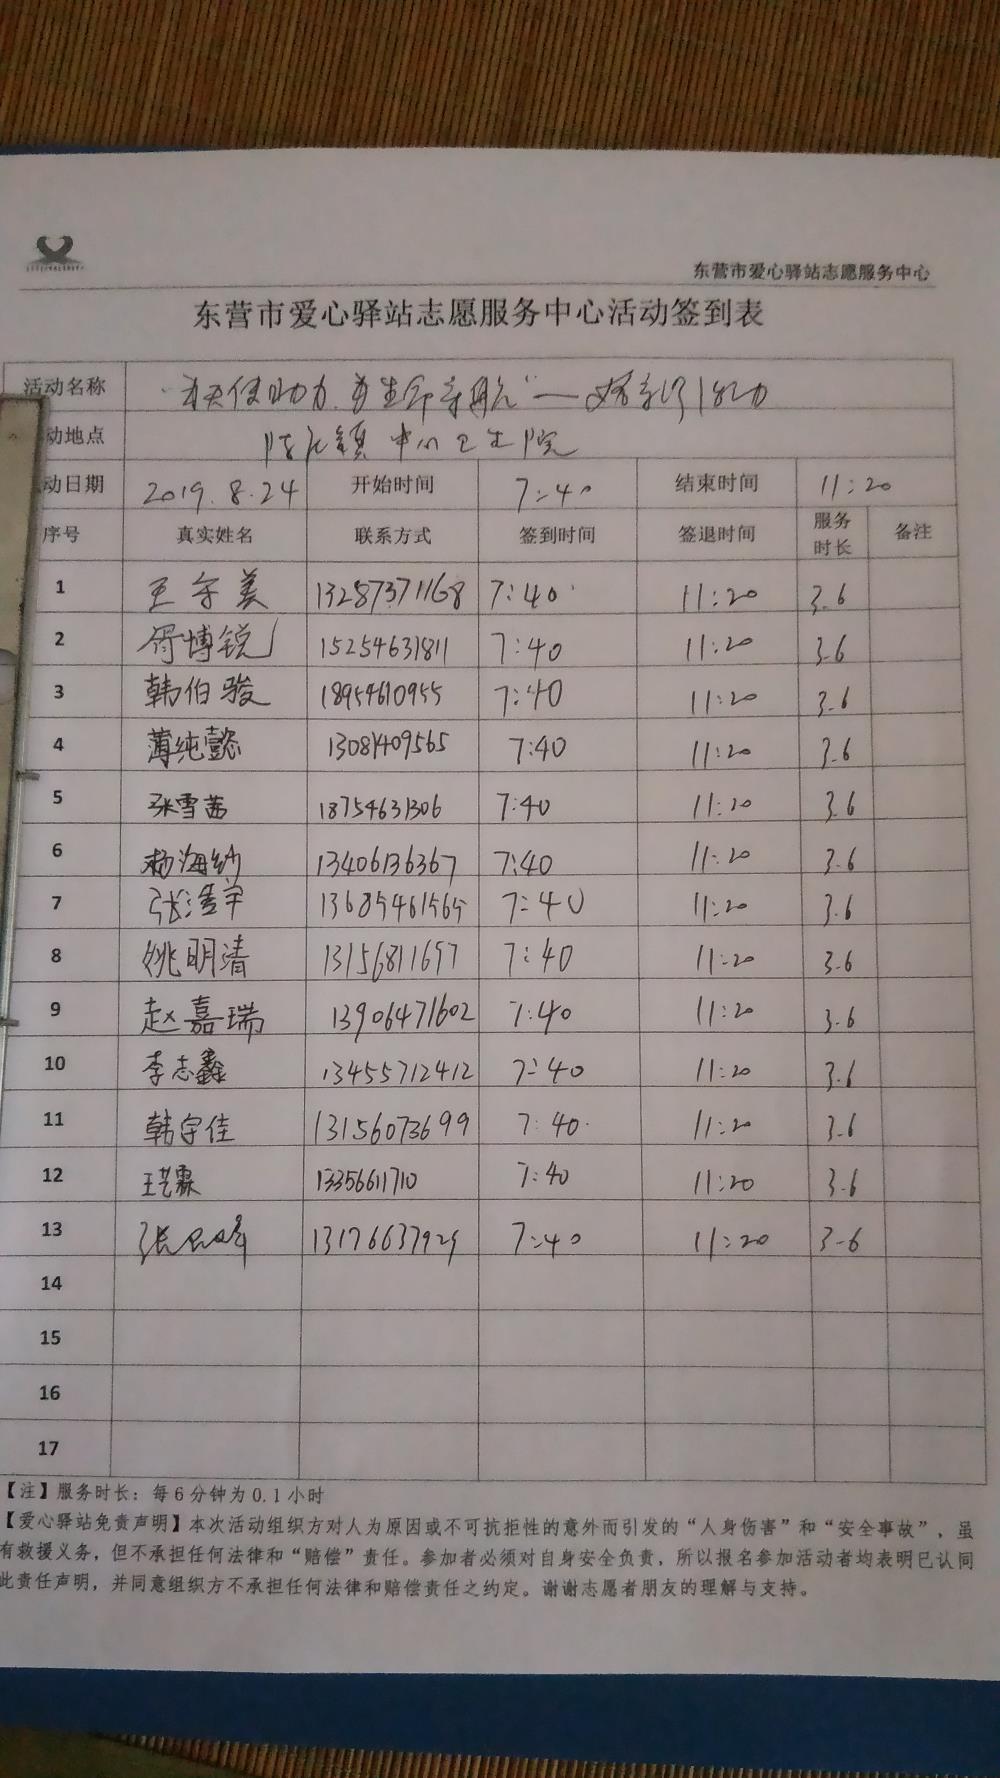 东营市爱心驿站志愿服务中心
东营市爱心驿站志愿服务中心活动签到表
活动名称
动地点 镇中心卫生院
动日期 2019.8.24 开始时间 7:40 结束时间 11:20
序号 真实姓名 联系方式 签到时间 签退时间 服务时长 备注
1 王守美 13287371168 7:40 11:20 3.6
2 胥博锐 15254631811 7:40 11:20 3.6
3 韩伯骏 18954610955 7:40 11:20 3.6
4 薄纯懿 13081409565 7:40 11:20 3.6
5 张雪茜 18754631306 7:40 11:20 3.6
6 杨海纱 13406136367 7:40 11:20 3.6
7 张 宇 13685461565 7:40 11:20 3.6
8 姚明清 13156811697 7:40 11:20 3.6
9 赵嘉瑞 13906471602 7:40 11:20 3.6
10 李志鑫 13455712412 7:40 11:20 3.6
11 韩宇佳 13156073699 7:40 11:20 3.6
12 王艺霖 13356611710 7:40 11:20 3.6
13 张 峰 13176637929 7:40 11:20 3.6
14
15
16
17
【注】服务时长：每6分钟为0.1小时
【爱心驿站免责声明】本次活动组织方对人为原因或不可抗拒性的意外而引发的“人身伤害”和“安全事故”，虽
有救援义务，但不承担任何法律和“赔偿”责任。参加者必须对自身安全负责，所以报名参加活动者均表明已认同
此责任声明，并同意组织方不承担任何法律和赔偿责任之约定。谢谢志愿者朋友的理解与支持。